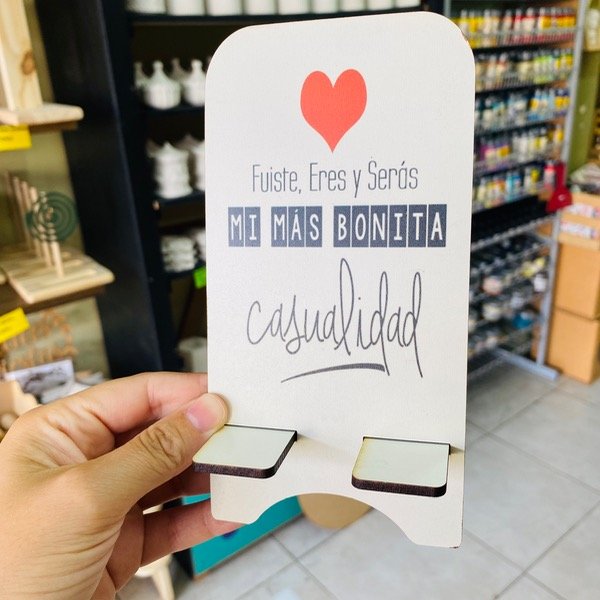 Fuiste, Eres y Serás
MI MÁS BONITA
casualidad